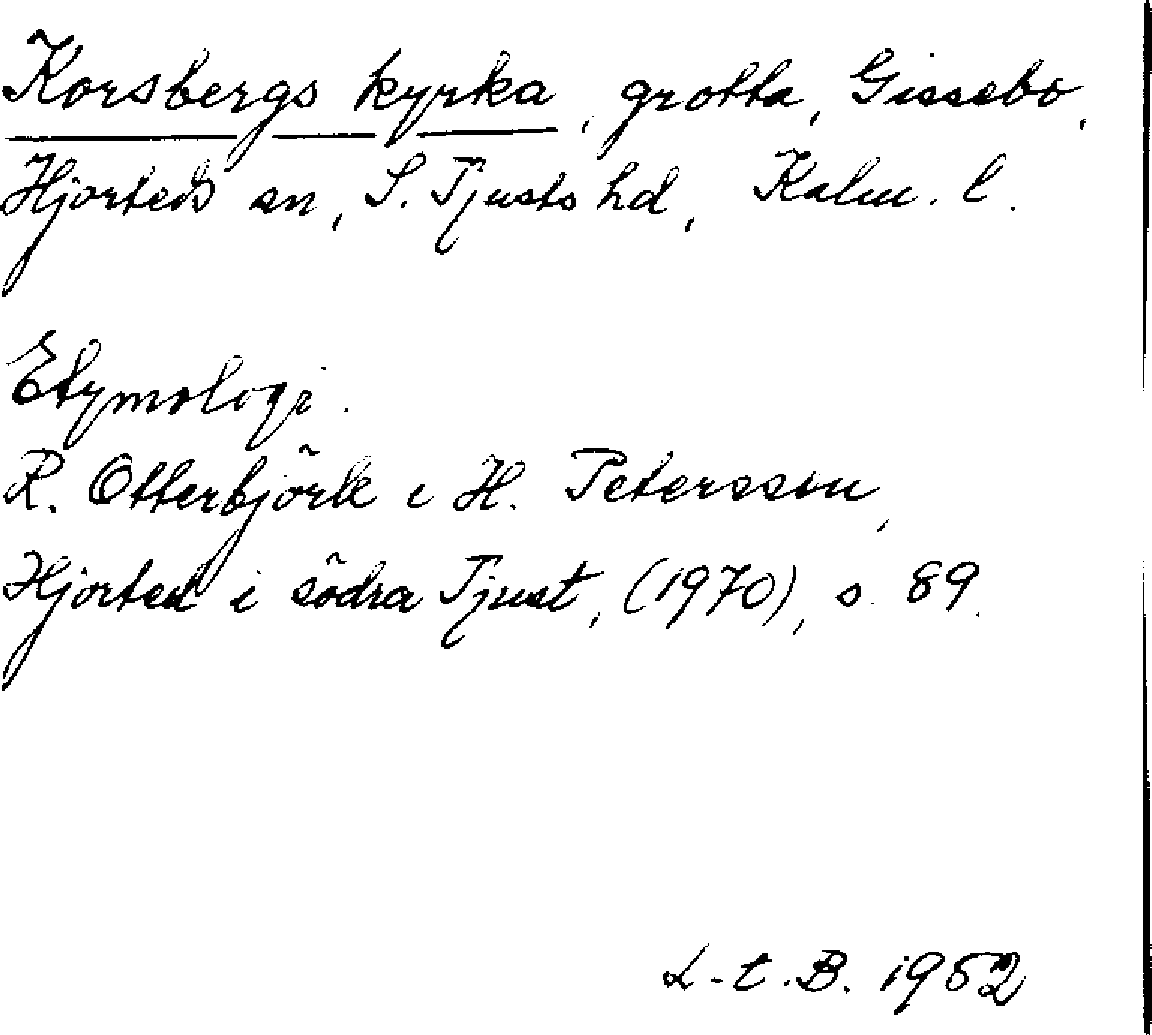 Korsbergs kyrka, grotta, Gissebo,
Hjorteds sn, S. Tjusts hd, Kalm. l.
Etymologi.
R. Otterbjörk i H. Petersson,
Hjorted i södra Tjust, (1970), s. 89.
L-t.B. 1952